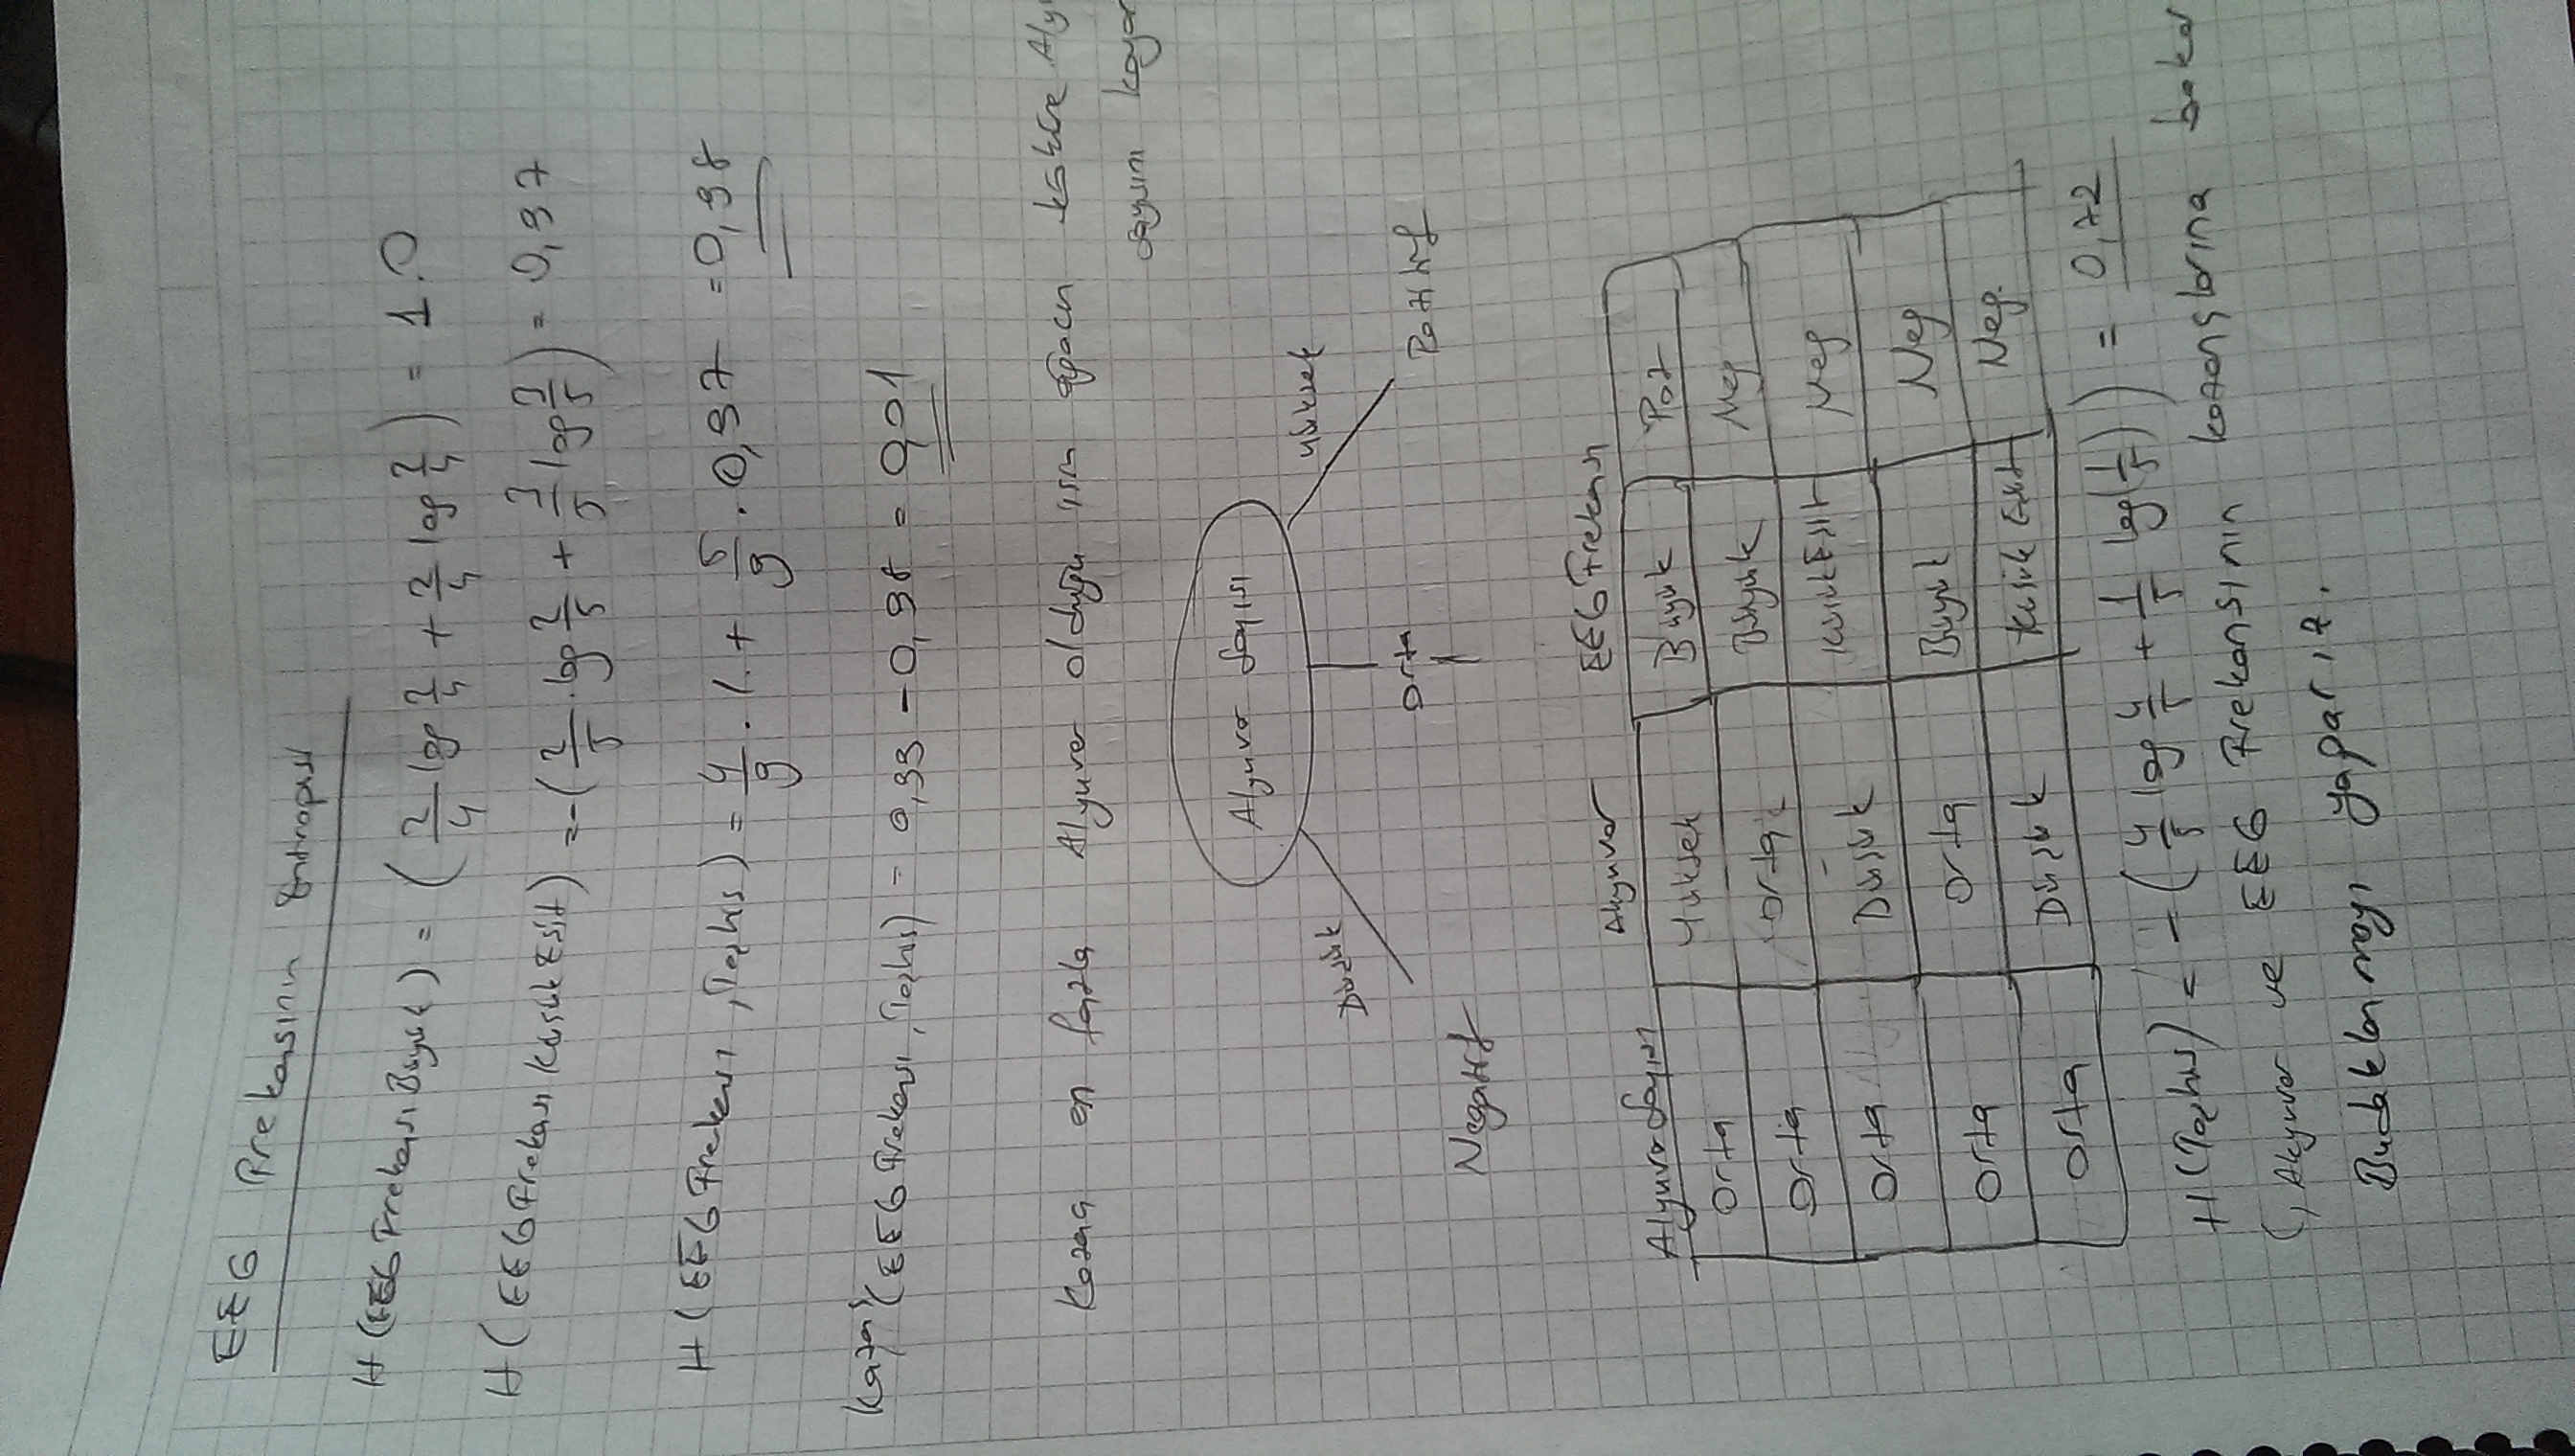 EEG Frekansının Entropisi
H (EEG Frekansı Büyük) = ( 2/4 log 2/4 + 2/4 log 2/4 ) = 1.0
H ( EEG Frekansı KüçükEşit) = -( 2/5 . log 2/5 + 3/5 log 3/5 ) = 0,97
H ( EEG Frekansı , Teşhis ) = 4/9 . 1. + 5/9 . 0,97 = 0,98
Kazanç (EEG Frekansı, Teşhis) = 0,99 - 0,98 = 0,01
Kazancı en fazla Alyuvar olduğu için ağacın köküne Aly
sayısını koyar
Alyuvar Sayısı
Düşük Orta Yüksek
Negatif Pozitif
Alyuvar Sayısı Akyuvar EEG Frekansı
Orta Yüksek Büyük Poz
Orta Orta Büyük Neg
Orta Düşük KüçükEşit Neg
Orta Orta Büyük Neg
Orta Düşük Küçük Eşit Neg.
H (Teşhis) = - ( 4/5 log 4/5 + 1/5 log( 1/5 ) ) = 0,72
(, Akyuvar ve EEG Frekansının kazançlarına bakar
Budaklanmayı yaparız.